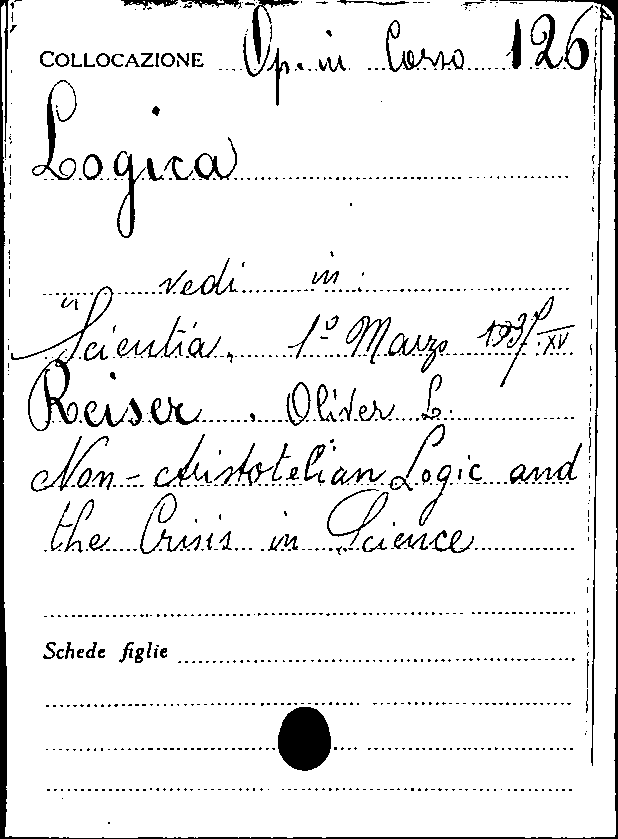 COLLOCAZIONE Op. in Corso 126
Logica
vedi in:
"Scientia" 1º Marzo 1937.XV
Reiser. Oliver L.
Non-Aristotelian Logic and
the Crisis in Science
Schede figlie